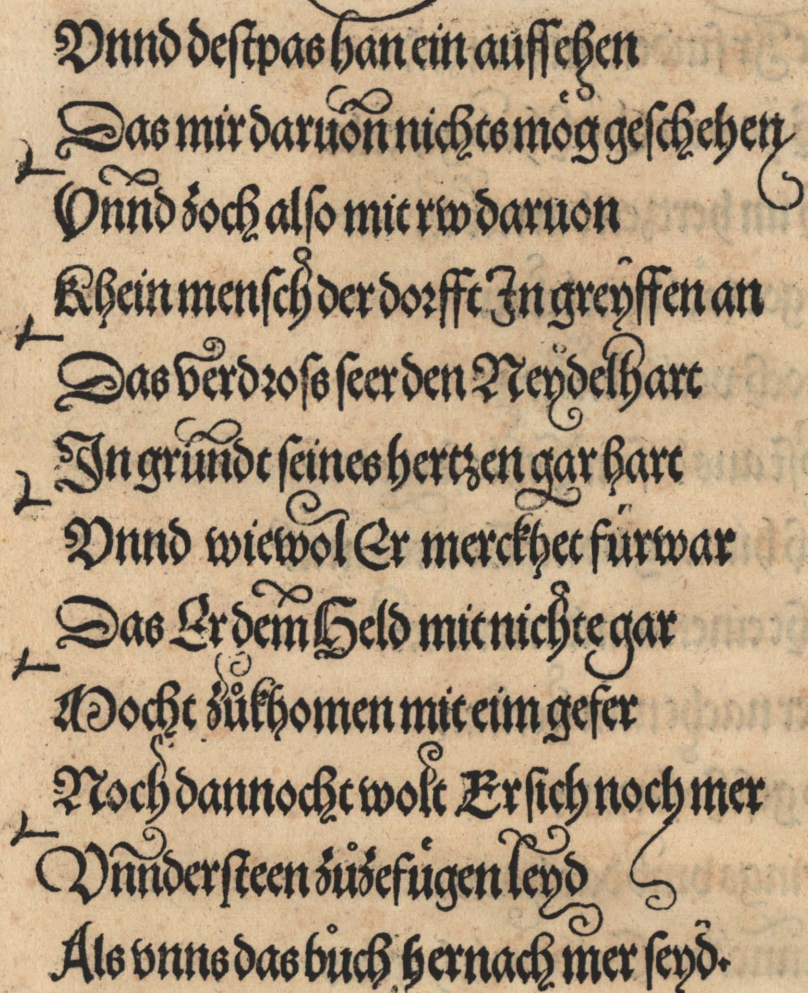 Vnnd destpas han ein auffsehen
Das mir daruon nichts mög geschehen
Vnnd zoch also mit rw daruon
Khein mensch der dorfft In greyffen an
Das verdross seer den Neydelhart
In grundt seines hertzen gar hart
Vnnd wiewol Er merckhet fürwar
Das Er dem Held mit nichte gar
Mocht zůkhomen mit eim gefer
Noch dannocht wolt Er sich noch mer
Vnndersteen zůzefügen leyd
Als vnns das bůch hernach mer seyd.